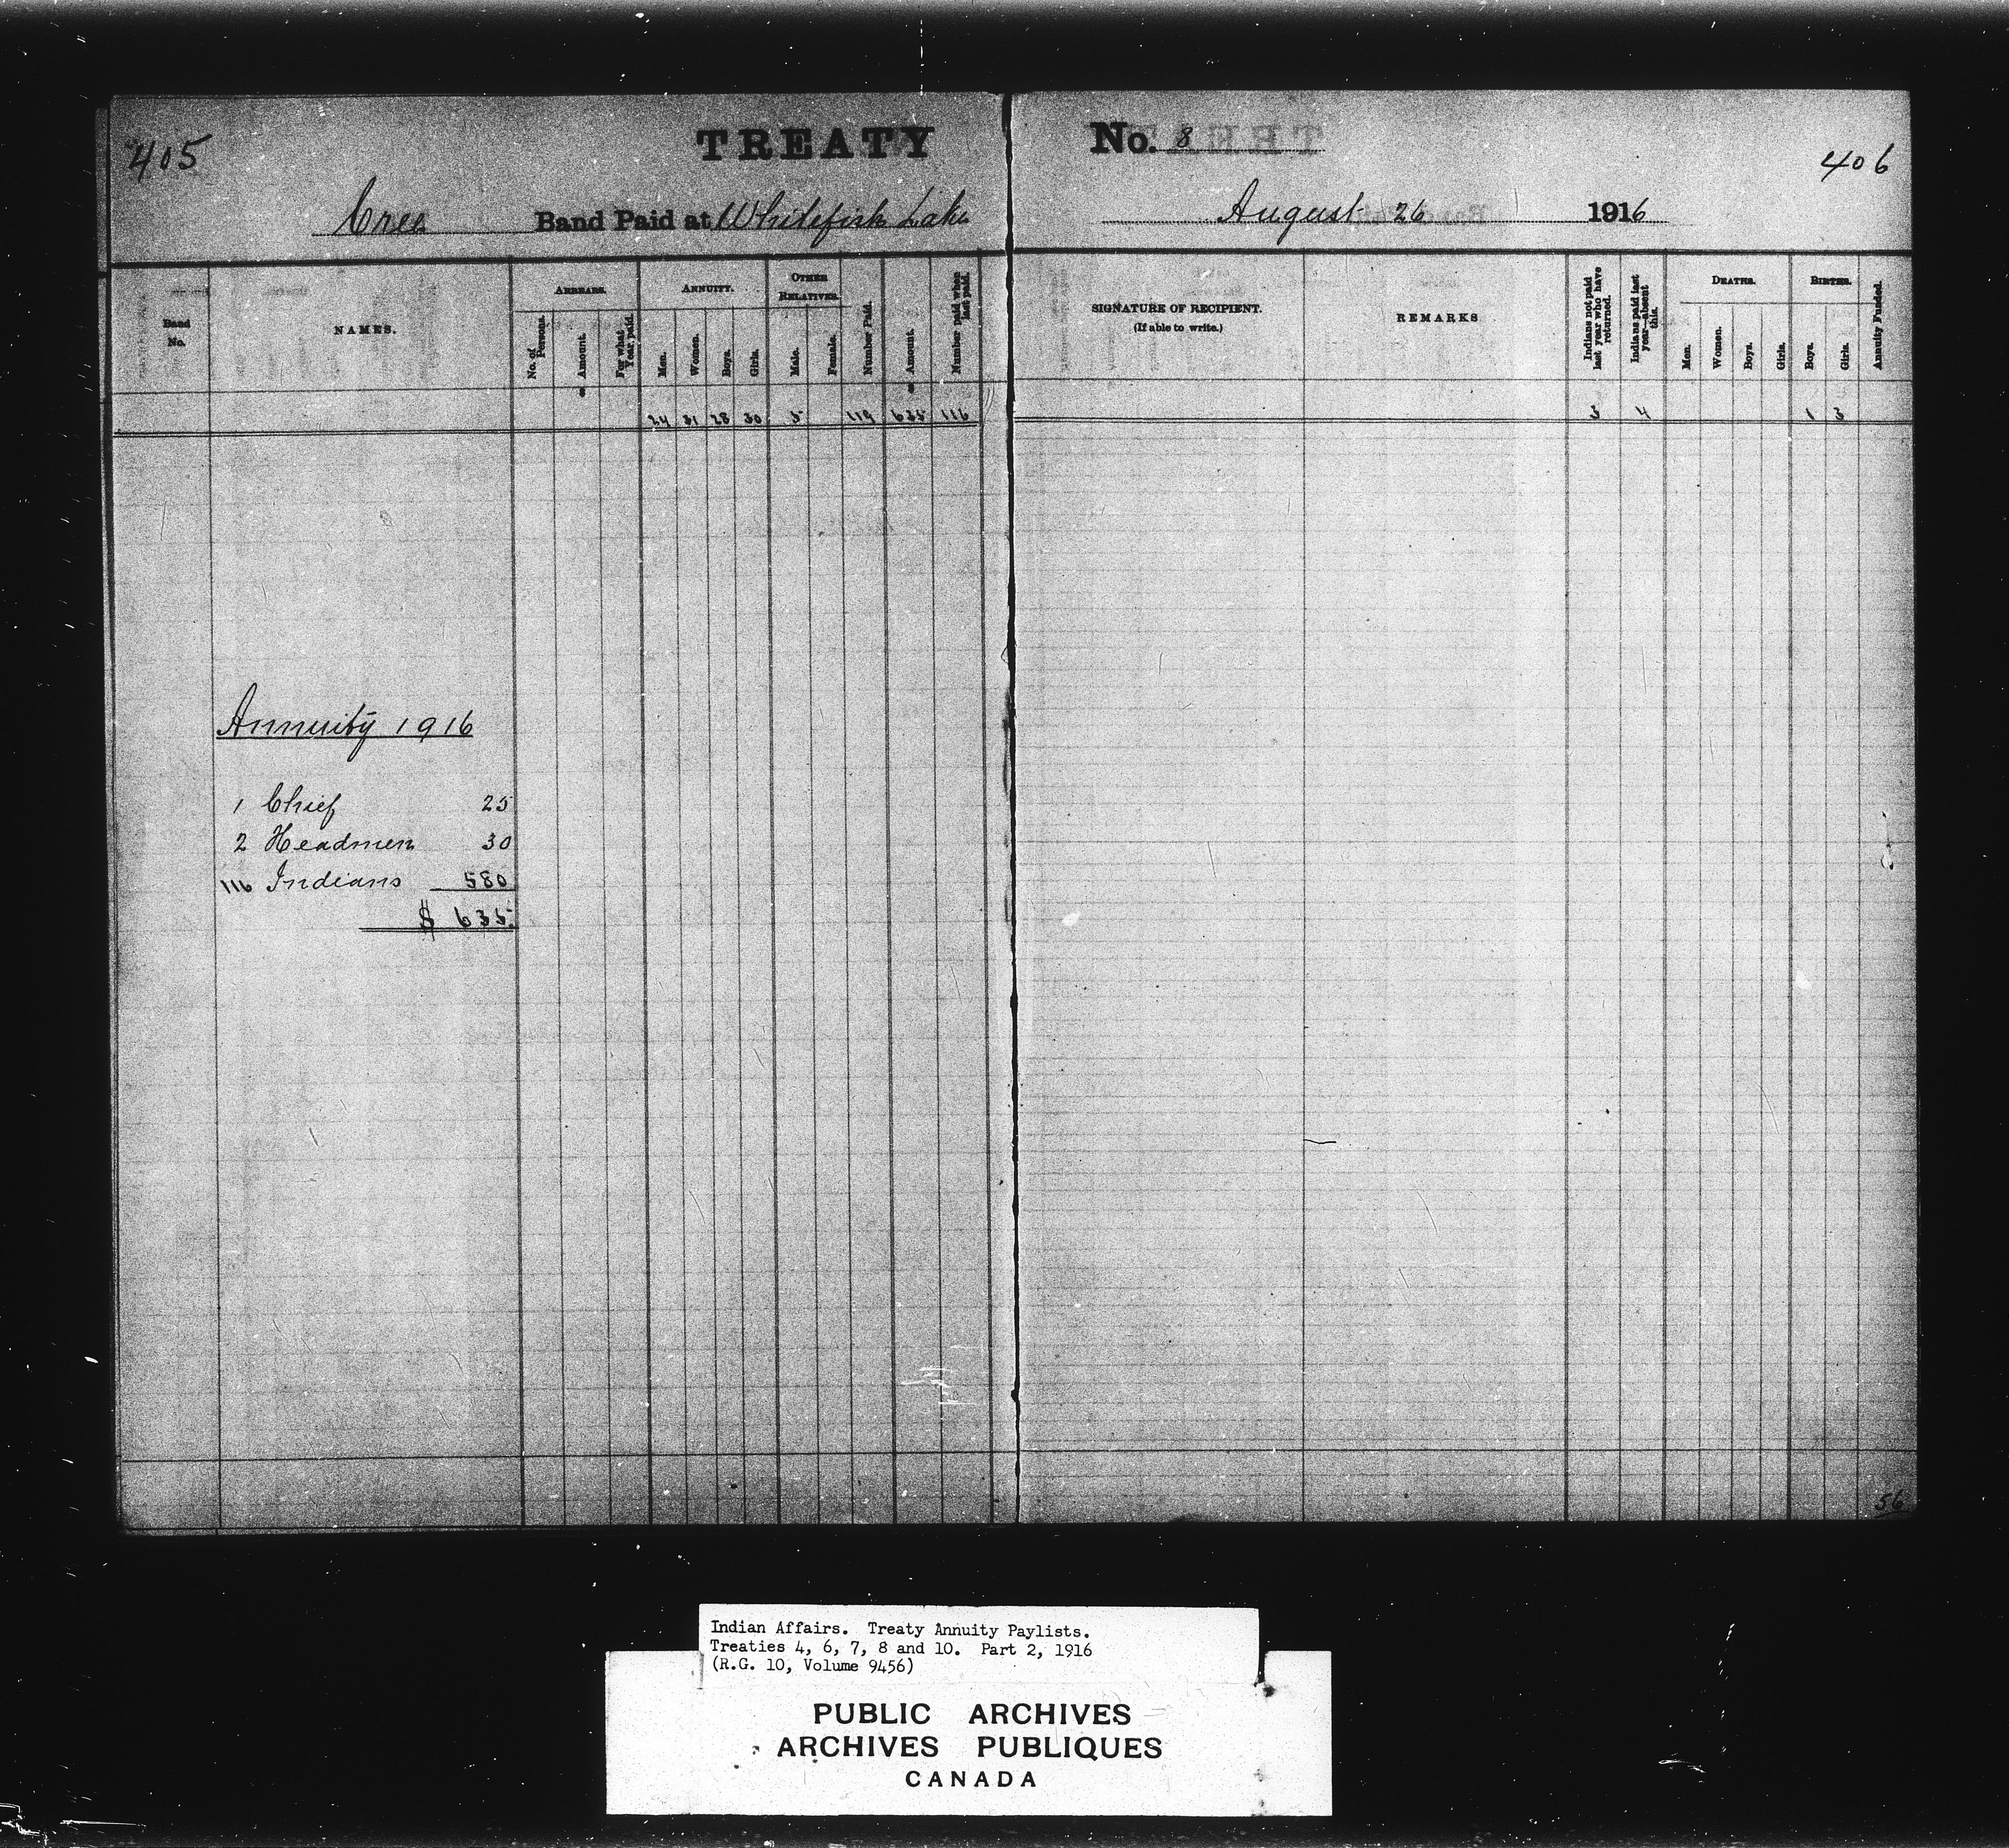 405
TREATY No. 8
406
Cree Band Paid at Whitefish Lake August 26 1916
Band No.
NAMES.
ARREARS.
No. of Persons.
Amount.
For what Year, paid.
ANNUITY.
Men.
Women.
Boys.
Girls.
OTHER RELATIVES.
Male.
Female.
Number Paid.
Amount.
Number paid when last paid.
SIGNATURE OF RECIPIENT.
(If able to write.)
REMARKS
Indians not paid last year who have returned.
Indians paid last year—absent this.
DEATHS.
Men.
Women.
Boys.
Girls.
BIRTHS.
Boys.
Girls.
Annuity Funded.
24 31 28 30 5 119 635 116 3 4 1 3
Annuity 1916
1 Chief 25
2 Headmen 30
116 Indians 580
$ 635
56
Indian Affairs. Treaty Annuity Paylists.
Treaties 4, 6, 7, 8 and 10. Part 2, 1916
(R.G. 10, Volume 9456)
PUBLIC ARCHIVES
ARCHIVES PUBLIQUES
CANADA